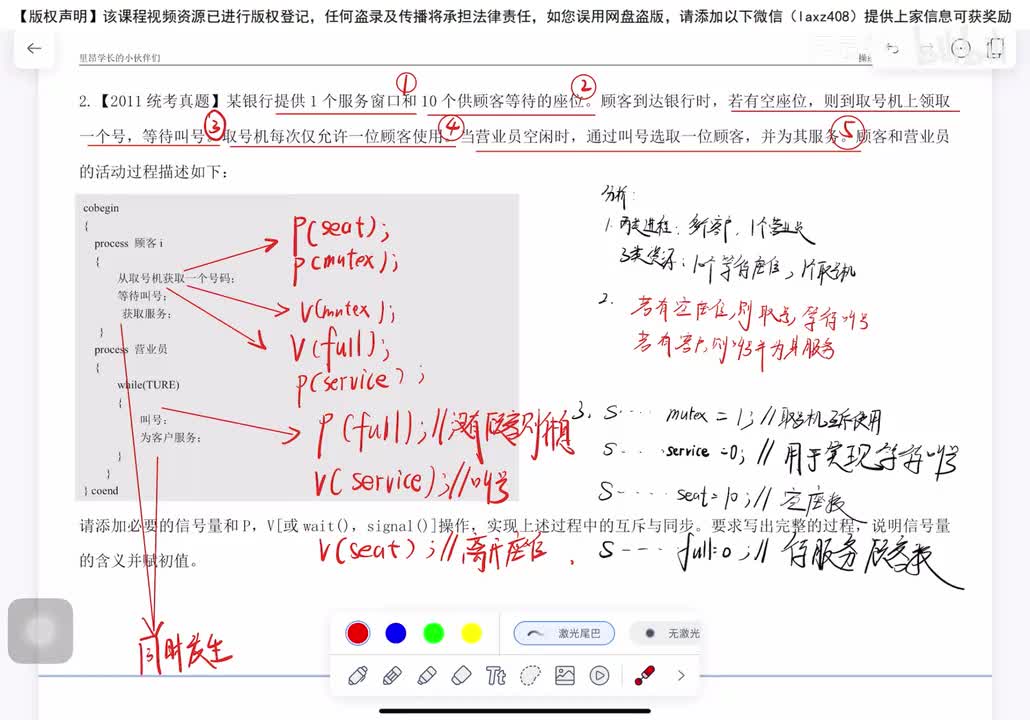 【版权声明】该课程视频资源已进行版权登记，任何盗录及传播将承担法律责任，如您误用网盘盗版，请添加以下微信（laxz408）提供上家信息可获奖励
里昂学长的小伙伴们
bilibili
① ②
2.【2011 统考真题】某银行提供 1 个服务窗口和 10 个供顾客等待的座位。顾客到达银行时，若有空座位，则到取号机上领取
③ ④ ⑤
一个号，等待叫号。取号机每次仅允许一位顾客使用。当营业员空闲时，通过叫号选取一位顾客，并为其服务。顾客和营业员
的活动过程描述如下：
cobegin
{
process 顾客 i
{
从取号机获取一个号码；
等待叫号；
获取服务；
}
process 营业员
{
while(TURE)
{
叫号；
为客户服务；
}
}
} coend
P(seat);
p(mutex);
V(mutex);
V(full);
p(service);
P(full);//没有顾客则休息
V(service);//叫号
V(seat);//离开座位.
同时发生
分析:
1. 两类进程: 多个客户, 1个营业员
资源: 10个等待座位, 1个取号机
2. 若有空座位,则取号,等待叫号
若有客户,则叫号并为其服务
3. S···· mutex = 1; //取号机互斥使用
S····service =0; // 用于实现等待叫号
S···· seat=10; // 空座数
S---- full=0; // 待服务顾客数
请添加必要的信号量和 P，V[或 wait()，signal()]操作，实现上述过程中的互斥与同步。要求写出完整的过程，说明信号量
的含义并赋初值。
激光尾巴
无激光
Tt